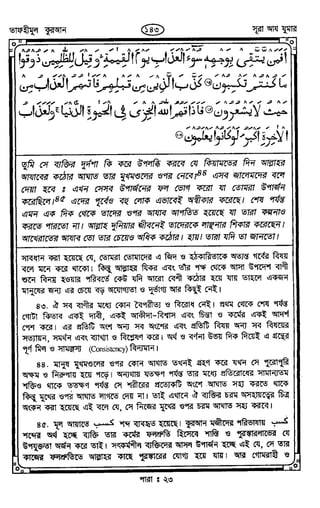 তাফহীমুল কুরআন ১৪৩ সূরা আয যুমার
أَفَمَنْ يَتَّقِي بِوَجْهِهِ سُوءَ الْعَذَابِ يَوْمَ الْقِيٰمَةِ وَقِيلَ لِلظّٰلِمِينَ ذُوقُوا
مَا كُنْتُمْ تَكْسِبُونَ كَذَّبَ الَّذِينَ مِنْ قَبْلِهِمْ فَأَتٰهُمُ الْعَذَابُ مِنْ
حَيْثُ لَا يَشْعُرُونَ فَأَذَاقَهُمُ اللهُ الْخِزْيَ فِي الْحَيٰوةِ الدُّنْيَا وَلَعَذَابُ
الْاٰخِرَةِ أَكْبَرُ لَوْ كَانُوا يَعْلَمُونَ
তুমি সে ব্যক্তির দুর্দশা কি করে উপলব্ধি করবে যে কিয়ামতের দিন আল্লাহর
আযাবের কঠোর আঘাত তার মুখমণ্ডলের ওপর নেবে?৪৪ এসব জালেমদের বলে
দেয়া হবে : এখন সেসব উপার্জনের ফল ভোগ করো যা তোমরা উপার্জন
করেছিলে।৪৫ এদের পূর্বেও বহু লোক এভাবেই অস্বীকার করেছে। শেষ পর্যন্ত
এমন এক দিক থেকে তাদের ওপর আযাব আপতিত হয়েছে যা তারা কল্পনাও
করতে পারতো না। আল্লাহ দুনিয়ার জীবনেই তাদেরকে লাঞ্ছনার শিকার করেছেন।
আখেরাতের আযাব তো তার চেয়েও অধিক কঠোর। হায়! তারা যদি তা জানতো।
সাবধান করা হয়েছে যে, তোমরা তোমাদের এ জিদ ও হঠকারিতাকে অত্যন্ত গর্বের বিষয়
বলে মনে করে থাকো। কিন্তু আল্লাহর যিকর এবং তাঁর পক্ষ থেকে আসা উপদেশ বাণী
শুনে বিনম্র হওয়ার পরিবর্তে কেউ যদি আরো বেশী কঠোর হয়ে যায় তাহলে একজন
মানুষের জন্য এর চেয়ে বড় অযোগ্যতা ও দুর্ভাগ্য আর কিছুই নেই।
৪৩. এ সব বাণীর মধ্যে কোন বৈপরীত্য ও বিরোধ নেই। প্রথম থেকে শেষ পর্যন্ত
গোটা কিতাব একই দাবী, একই আকীদা-বিশ্বাস এবং চিন্তা ও কর্মের একই আদর্শ
পেশ করে। এর প্রতিটি অংশ অন্য সব অংশের এবং প্রতিটি বিষয় অন্য সব বিষয়ের
সত্যায়ন, সমর্থন এবং ব্যাখ্যা ও বিশ্লেষণ করে। অর্থ ও বর্ণনা উভয় দিক দিয়েই এ গ্রন্থের
পূর্ণ মিল ও সামঞ্জস্য (Consistency) বিদ্যমান।
৪৪. মানুষ মুখমণ্ডলের ওপর কোন আঘাত তখনই গ্রহণ করে যখন সে পুরোপুরি
অক্ষম ও নিরুপায় হয়ে পড়ে। অন্যথায় যতক্ষণ পর্যন্ত তার মধ্যে প্রতিরোধের সামান্যতম
শক্তিও থাকে ততক্ষণ পর্যন্ত সে শরীরের প্রত্যেকটি অংশে আঘাত সহ্য করতে থাকে
কিন্তু মুখের ওপর আঘাত লাগতে দেয় না। তাই এখানে ঐ ব্যক্তির চরম অসহায়ত্বের চিত্র
অংকন করা হয়েছে এই বলে যে, সে নিজের মুখের ওপর চরম আঘাত সহ্য করবে।
৪৫. মূল আয়াতে كسب শব্দ ব্যবহৃত হয়েছে। কুরআন মজীদের পরিভাষায় كسب
শব্দের অর্থ হচ্ছে ব্যক্তি তার কর্মের ফলশ্রুতি হিসেবে শাস্তি ও পুরস্কারলাভের যে
উপযুক্ততা অর্জন করে তাই। সৎকর্মশীল ব্যক্তিদের আসল উপার্জন হচ্ছে এই যে, সে তার
কাজের ফলশ্রুতিতে আল্লাহর কাছে পুরস্কারের যোগ্য হয়ে যায়। আর গোমরাহী ও
পারা : ২৩